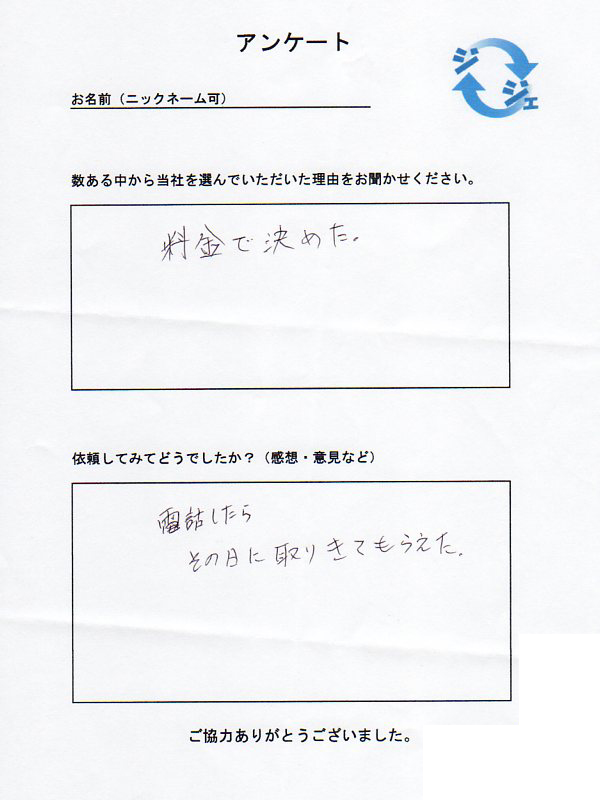 アンケート
ジジェ
お名前（ニックネーム可）
数ある中から当社を選んでいただいた理由をお聞かせください。
料金で決めた。
依頼してみてどうでしたか？（感想・意見など）
電話したら
その日に取りきてもらえた。
ご協力ありがとうございました。